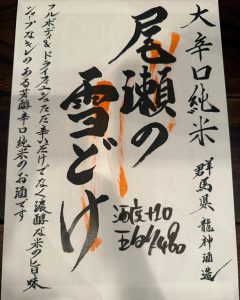 大辛口純米
群馬県 龍神酒造
尾瀬の
雪どけ
酒度+10
五勺/480
フルボディ&ドライ
ただ辛いだけでなく濃醇な米の旨味
シャープなキレのある芳醇辛口純米のお酒です